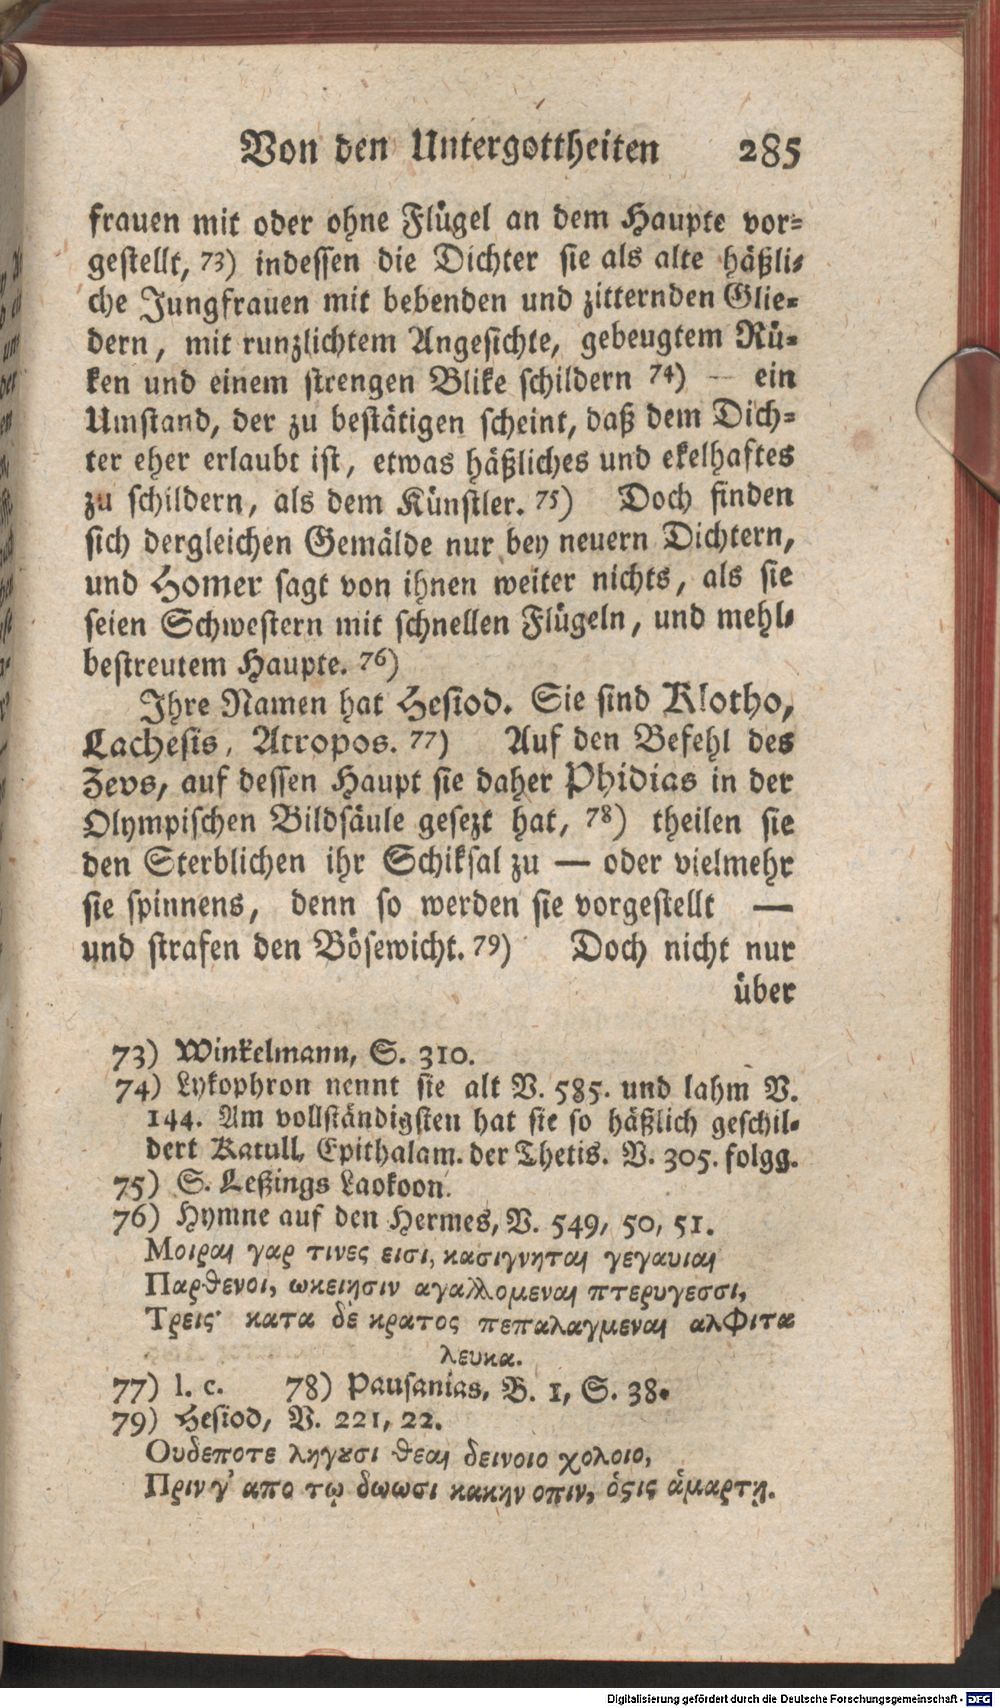 Von den Untergottheiten 285
frauen mit oder ohne Flügel an dem Haupte vor-
gestellt, 73) indessen die Dichter sie als alte häßli-
che Jungfrauen mit bebenden und zitternden Glie-
dern, mit runzlichtem Angesichte, gebeugtem Rü-
ken und einem strengen Blike schildern 74) — ein
Umstand, der zu bestätigen scheint, daß dem Dich-
ter eher erlaubt ist, etwas häßliches und ekelhaftes
zu schildern, als dem Künstler. 75) Doch finden
sich dergleichen Gemälde nur bey neuern Dichtern,
und Homer sagt von ihnen weiter nichts, als sie
seien Schwestern mit schnellen Flügeln, und mehl-
bestreutem Haupte. 76)
Ihre Namen hat Hesiod. Sie sind Klotho,
Lachesis, Atropos. 77) Auf den Befehl des
Zevs, auf dessen Haupt sie daher Phidias in der
Olympischen Bildsäule gesezt hat, 78) theilen sie
den Sterblichen ihr Schiksal zu — oder vielmehr
sie spinnens, denn so werden sie vorgestellt —
und strafen den Bösewicht. 79) Doch nicht nur
über
73) Winkelmann, S. 310.
74) Lykophron nennt sie alt V. 585. und lahm V.
144. Am vollständigsten hat sie so häßlich geschil-
dert Katull, Epithalam. der Thetis. V. 305. folgg.
75) S. Leßings Laokoon.
76) Hymne auf den Hermes, V. 549, 50, 51.
Μοιραι γαρ τινες εισι, κασιγνηται γεγαυιαι
Παρθενοι, ωκειησιν αγαλλομεναι πτερυγεσσι,
Τρεις· κατα δὲ κρατος πεπαλαγμεναι αλφιτα
λευκα.
77) l. c. 78) Pausanias, B. 1, S. 38.
79) Hesiod, V. 221, 22.
Ουδεποτε ληγȣσι θεαι δεινοιο χολοιο,
Πριν γ' απο τῳ δωωσι κακην οπιν, ὁϛις ἁμαρτῃ.
Digitalisierung gefördert durch die Deutsche Forschungsgemeinschaft - DFG